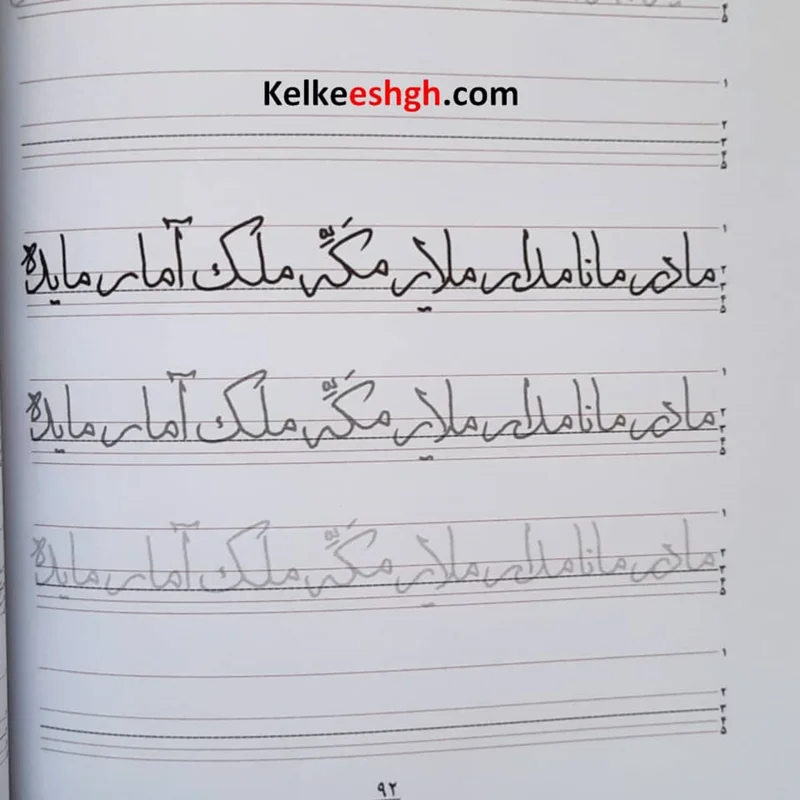 ۱
Kelkeeshgh.com
۲
۳
۱
مادر مانا مدار ملایر مکّه ملک آمار مایده
۲
۳
۱
مادر مانا مدار ملایر مکّه ملک آمار مایده
۲
۳
۱
مادر مانا مدار ملایر مکّه ملک آمار مایده
۲
۳
۱
۲
۳
۹۲